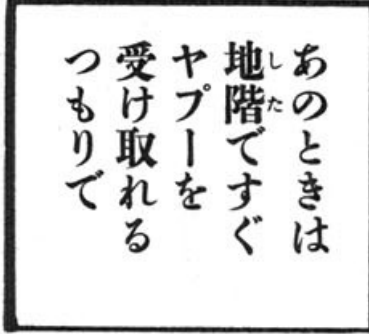 あのときは
地階ですぐ
ヤプーを
受け取れる
つもりで